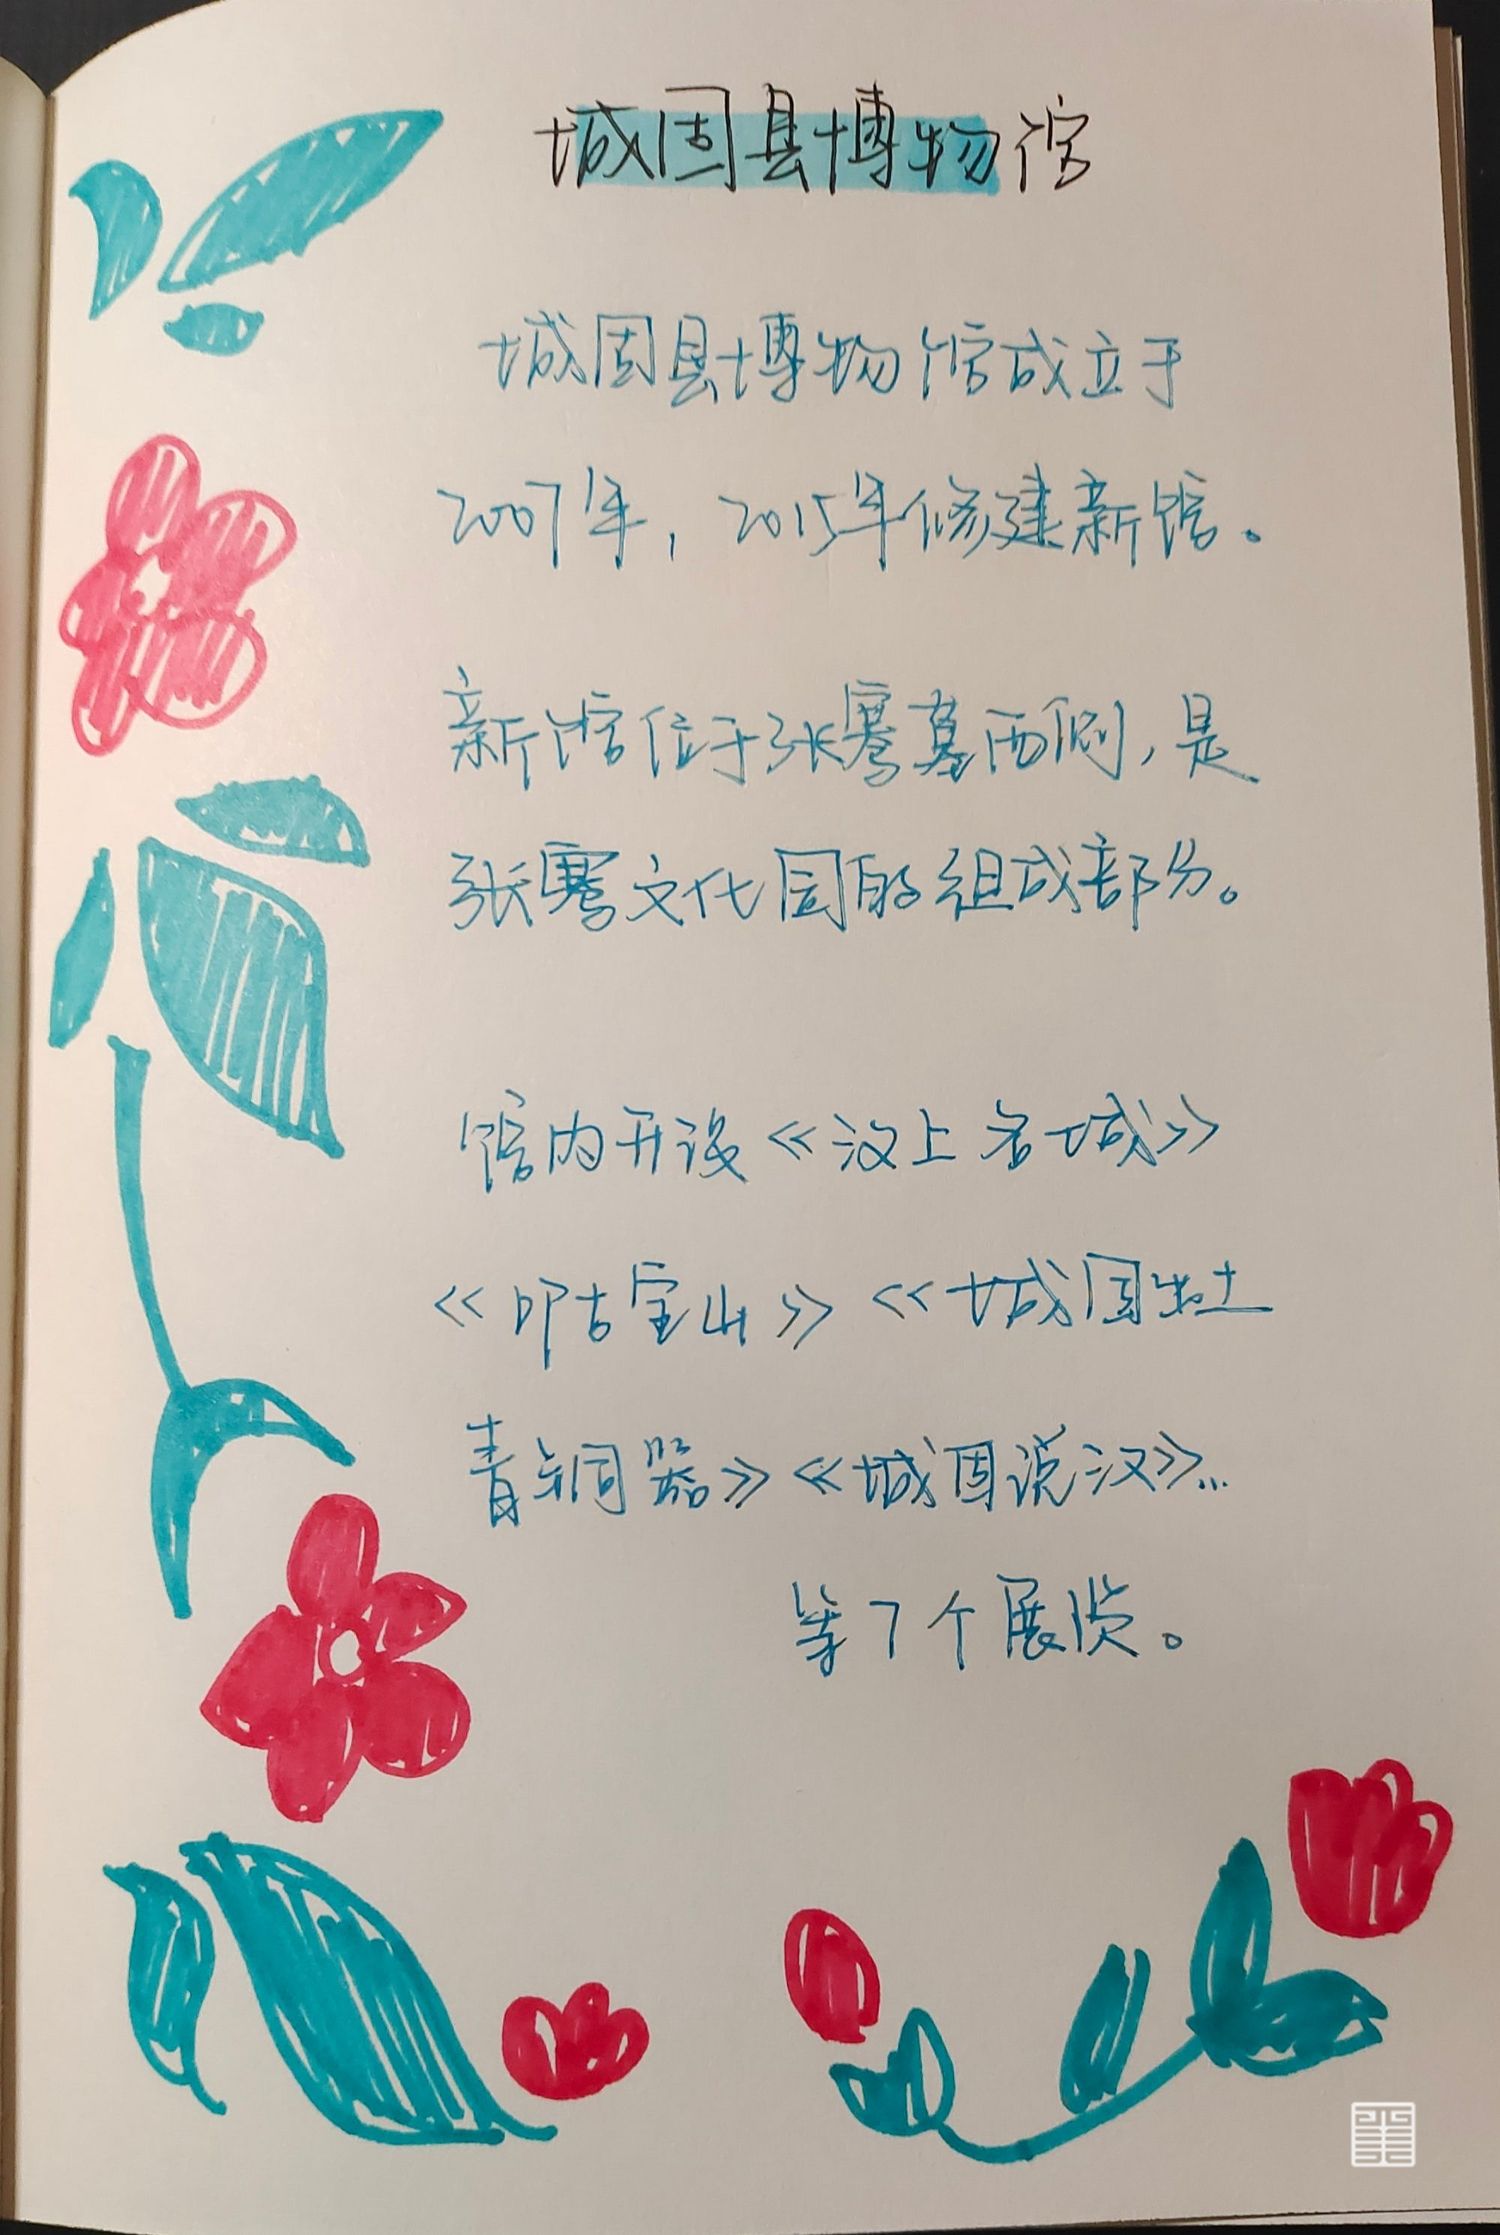 城固县博物馆
城固县博物馆成立于
2007年，2015年修建新馆。
新馆位于张骞墓西侧，是
张骞文化园的组成部分。
馆内开设《汉上名城》
《叩古宝山》《城固出土
青铜器》《城固说汉》...
等7个展览。